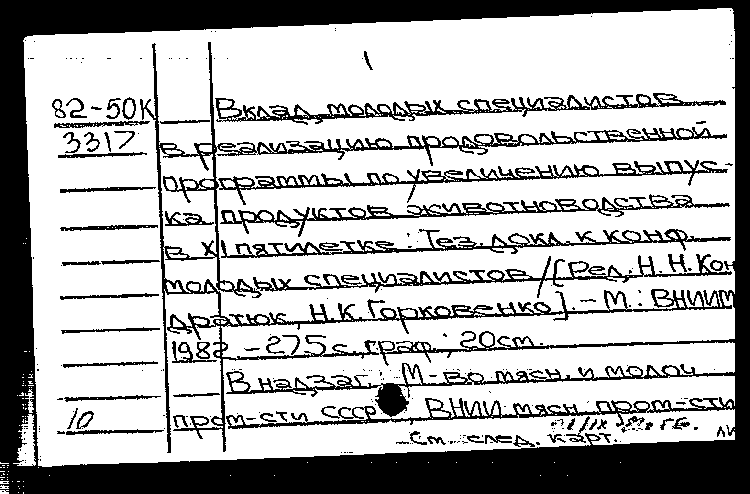 82-50К Вклад молодых специалистов
3317 в реализацию продовольственной
программы по увеличению выпус-
ка продуктов животноводства
в XI пятилетке : Тез. докл. к конф.
молодых специалистов / [Ред. Н.Н. Кон
дратюк, Н.К. Горковенко]. - М : ВНИИМ
1982 - 275 с., граф.; 20 см.
В надзаг.: М-во мясн. и молоч
10 пром-сти СССР, ВНИИ мясн. пром-сти
См. след. карт.